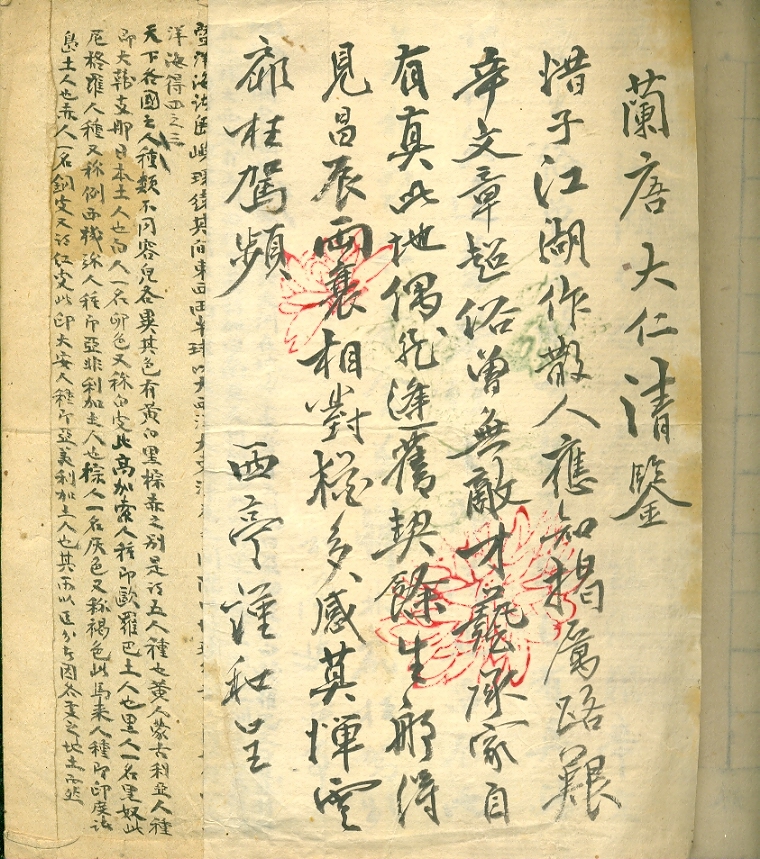 蘭唐大仁清鑒
惜子江湖作散人應知揭厲路艱
辛文章超俗曾無敵才藝承家自
有真此地偶然逢舊契餘生得
見昌辰兩相對縱多感莫憚雲
枉駕頻
西亭謹和呈
嶼環繞其間東西
洋海得四之三
天下各國之人種類不同容皃各異其色有黃白黑棕赤之別是謂五人種也黃人蒙古利亞人種
即大韓支那日本土人也白人一名卵色又称白皮此高加索人種即歐羅巴土人也黑人一名黑奴此
尼格羅人種又称例西機弥人種即亞非利加土人也棕人一名灰色又称褐色此馬来人種即印度諸
島土人也赤人一名銅皮又謂红皮此即大安人種即亞美利加土人也其所以區分者因各之地土而然